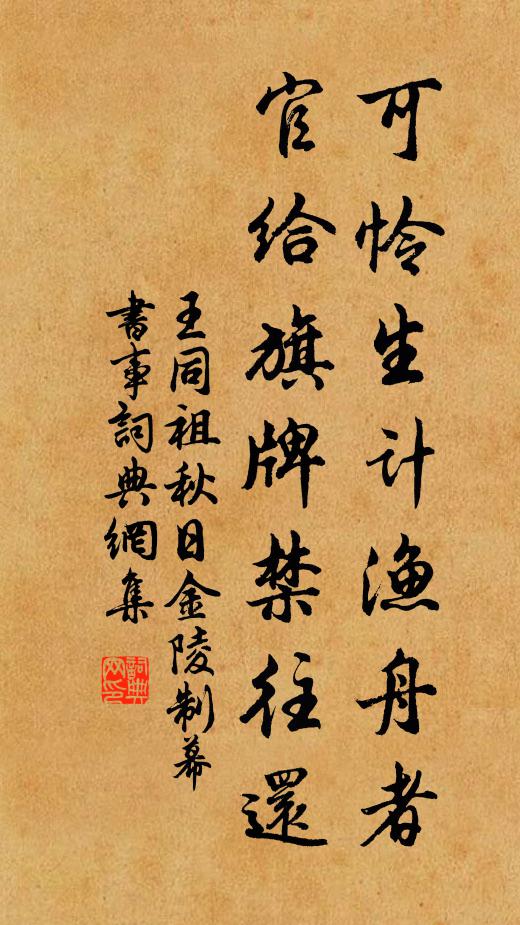 可怜生计渔舟者
官给旗牌禁往還
王同祖秋日金陵制幕
書事詞典網集
詞典网印